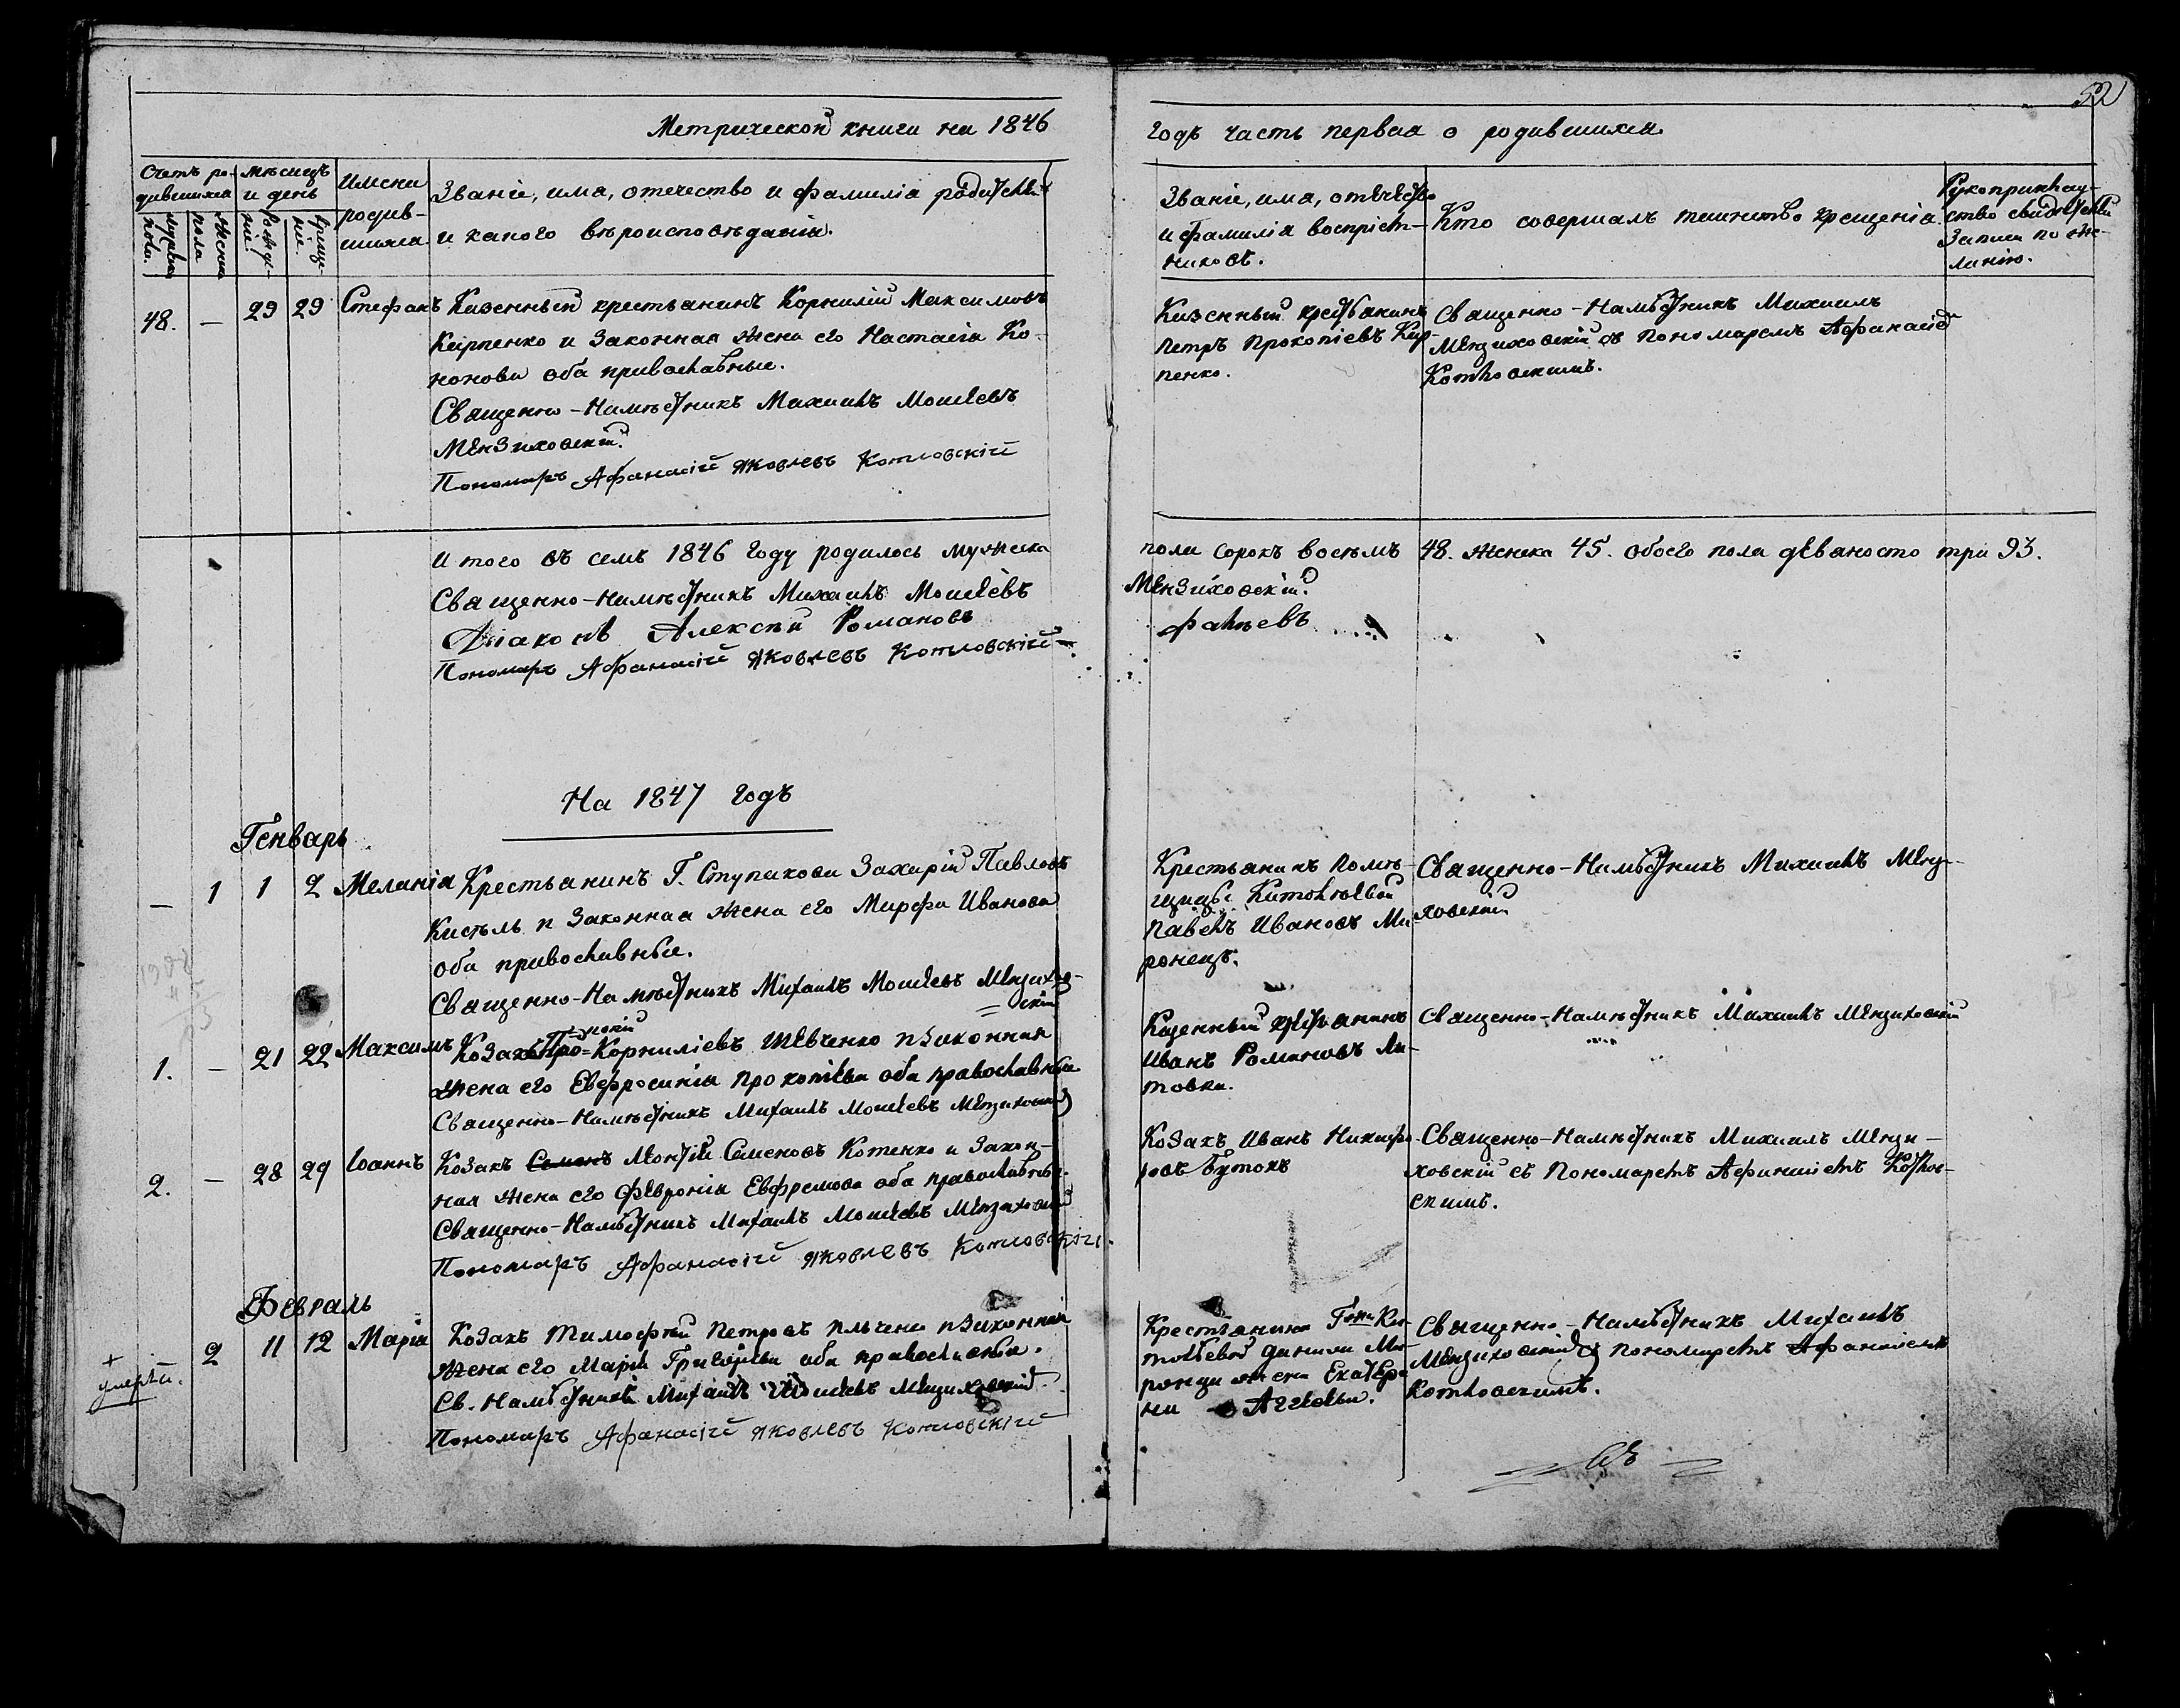 52
Метрической книги на 1846
годъ часть первая о родившихся
Счетъ ро-
дившихся
Мужеска
пола.
Женска
пола
Мѣсяцъ
и день
Рожде-
нiе.
Креще-
нiе.
Имена
родив-
шихся
Званіе, имя, отечество и фамилія родителей
и какого вѣроисповѣданія.
Званіе, имя, отечество
и фамилія воспріем-
никовъ.
Кто совершалъ таинство крещенія
Рукоприклад-
ство свидѣтелей
записи по же-
ланію.
48. — 29 29 Стефанъ
Казенный крестьянинъ Корнилій Максимовъ
Карпенко и законная жена его Настасія Ко-
нонова оба православные.
Священно-Намѣстникъ Михаилъ Моисеевъ
Мензиховскій.
Пономаръ Афанасій Яковлевъ Котловскій
Казенный крестьянинъ
Петръ Прокопіевъ Кар-
пенко.
Священно-Намѣстникъ Михаилъ
Мензиховскій съ пономаремъ Афанасіемъ
Котловскимъ.
Итого въ семъ 1846 году родилось мужеска
пола сорокъ восемъ 48. женска 45. обоего пола девяносто три 93.
Священно-Намѣстникъ Михаилъ Моисеевъ
Мензиховскій.
Діаконъ Алексѣй Романовъ
Пономаръ Афанасій Яковлевъ Котловскій
На 1847 годъ
Генварь
— 1 1 2 Меланія
Крестьянинъ Г. Ступакова Захарій Павловъ
Кисѣль и законная жена его Марфа Иванова
оба православные.
Священно-Намѣстникъ Михаилъ Моисеевъ Мензихов-
скій
Крестьянинъ помѣ-
щицы
Павелъ Ивановъ Ми-
ронецъ.
Священно-Намѣстникъ Михаилъ Мензи-
ховскій
1. — 21 22 Максимъ
Козакъ Про-
копій
Корниліевъ Шевченко и законная
жена его Евфросинія Прокопіева оба православные
Священно-Намѣстникъ Михаилъ Моисеевъ Мензиховскій
Казенный крестьянинъ
Иванъ Романовъ Ли-
товка.
Священно-Намѣстникъ Михаилъ Мензиховскій
2. — 28 29 Іоаннъ
Козакъ Семенъ Леонтій Семеновъ Котенко и закон-
ная жена его Февронія Евфремова оба православные.
Священно-Намѣстникъ Михаилъ Моисеевъ Мензиховскій
Пономаръ Афанасій Яковлевъ Котловскій.
Козакъ Иванъ Никифо-
ровъ Бутокъ
Священно-Намѣстникъ Михаилъ Мензи-
ховскій съ Пономаремъ Афанасіемъ Котлов-
скимъ.
Февраль
2 11 12 Марія
Козакъ Тимофѣй Петровъ и законная
жена его Марія Григоріева оба православные.
Св. Намѣстникъ Михаилъ Моисеевъ Мензиховскій
Пономаръ Афанасій Яковлевъ Котловскій
Крестьянина
Данила Ми-
ронца жена Екатери-
на
Священно-Намѣстникъ Михаилъ
Мензиховскій съ пономаремъ Афанасіемъ
Котловскимъ.